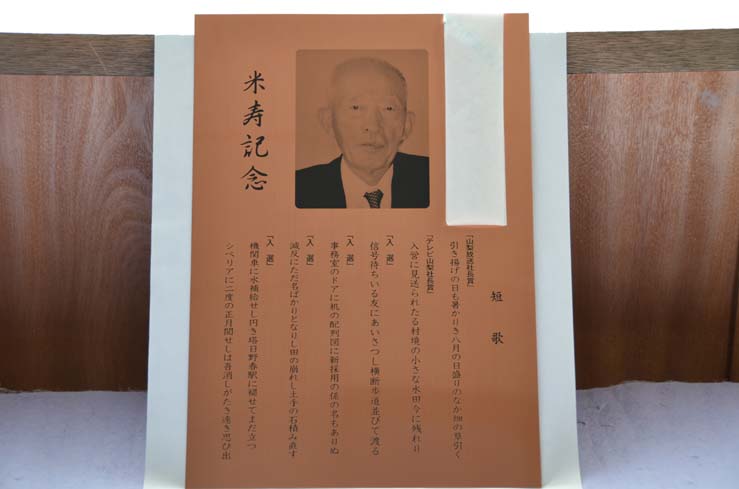 米寿記念
短歌
「山梨放送社長賞」
引き揚げの日も暑かりき八月の日盛りのなか畑の草引く
「テレビ山梨社長賞」
入営に見送られたる村境の小さな水田今に残れり
「入選」
信号待ちいる友にあいさつし横断歩道並びて渡る
「入選」
事務室のドアに机の配列図に新採用の係の名もありぬ
「入選」
減反にただ名ばかりとなりし田の崩れし土手の石積み直す
「入選」
機関車に水補給せし円き塔日野春駅に褪せてまだ立つ
シベリアに二度の正月閲せしは吾消しがたき遠き思ひ出